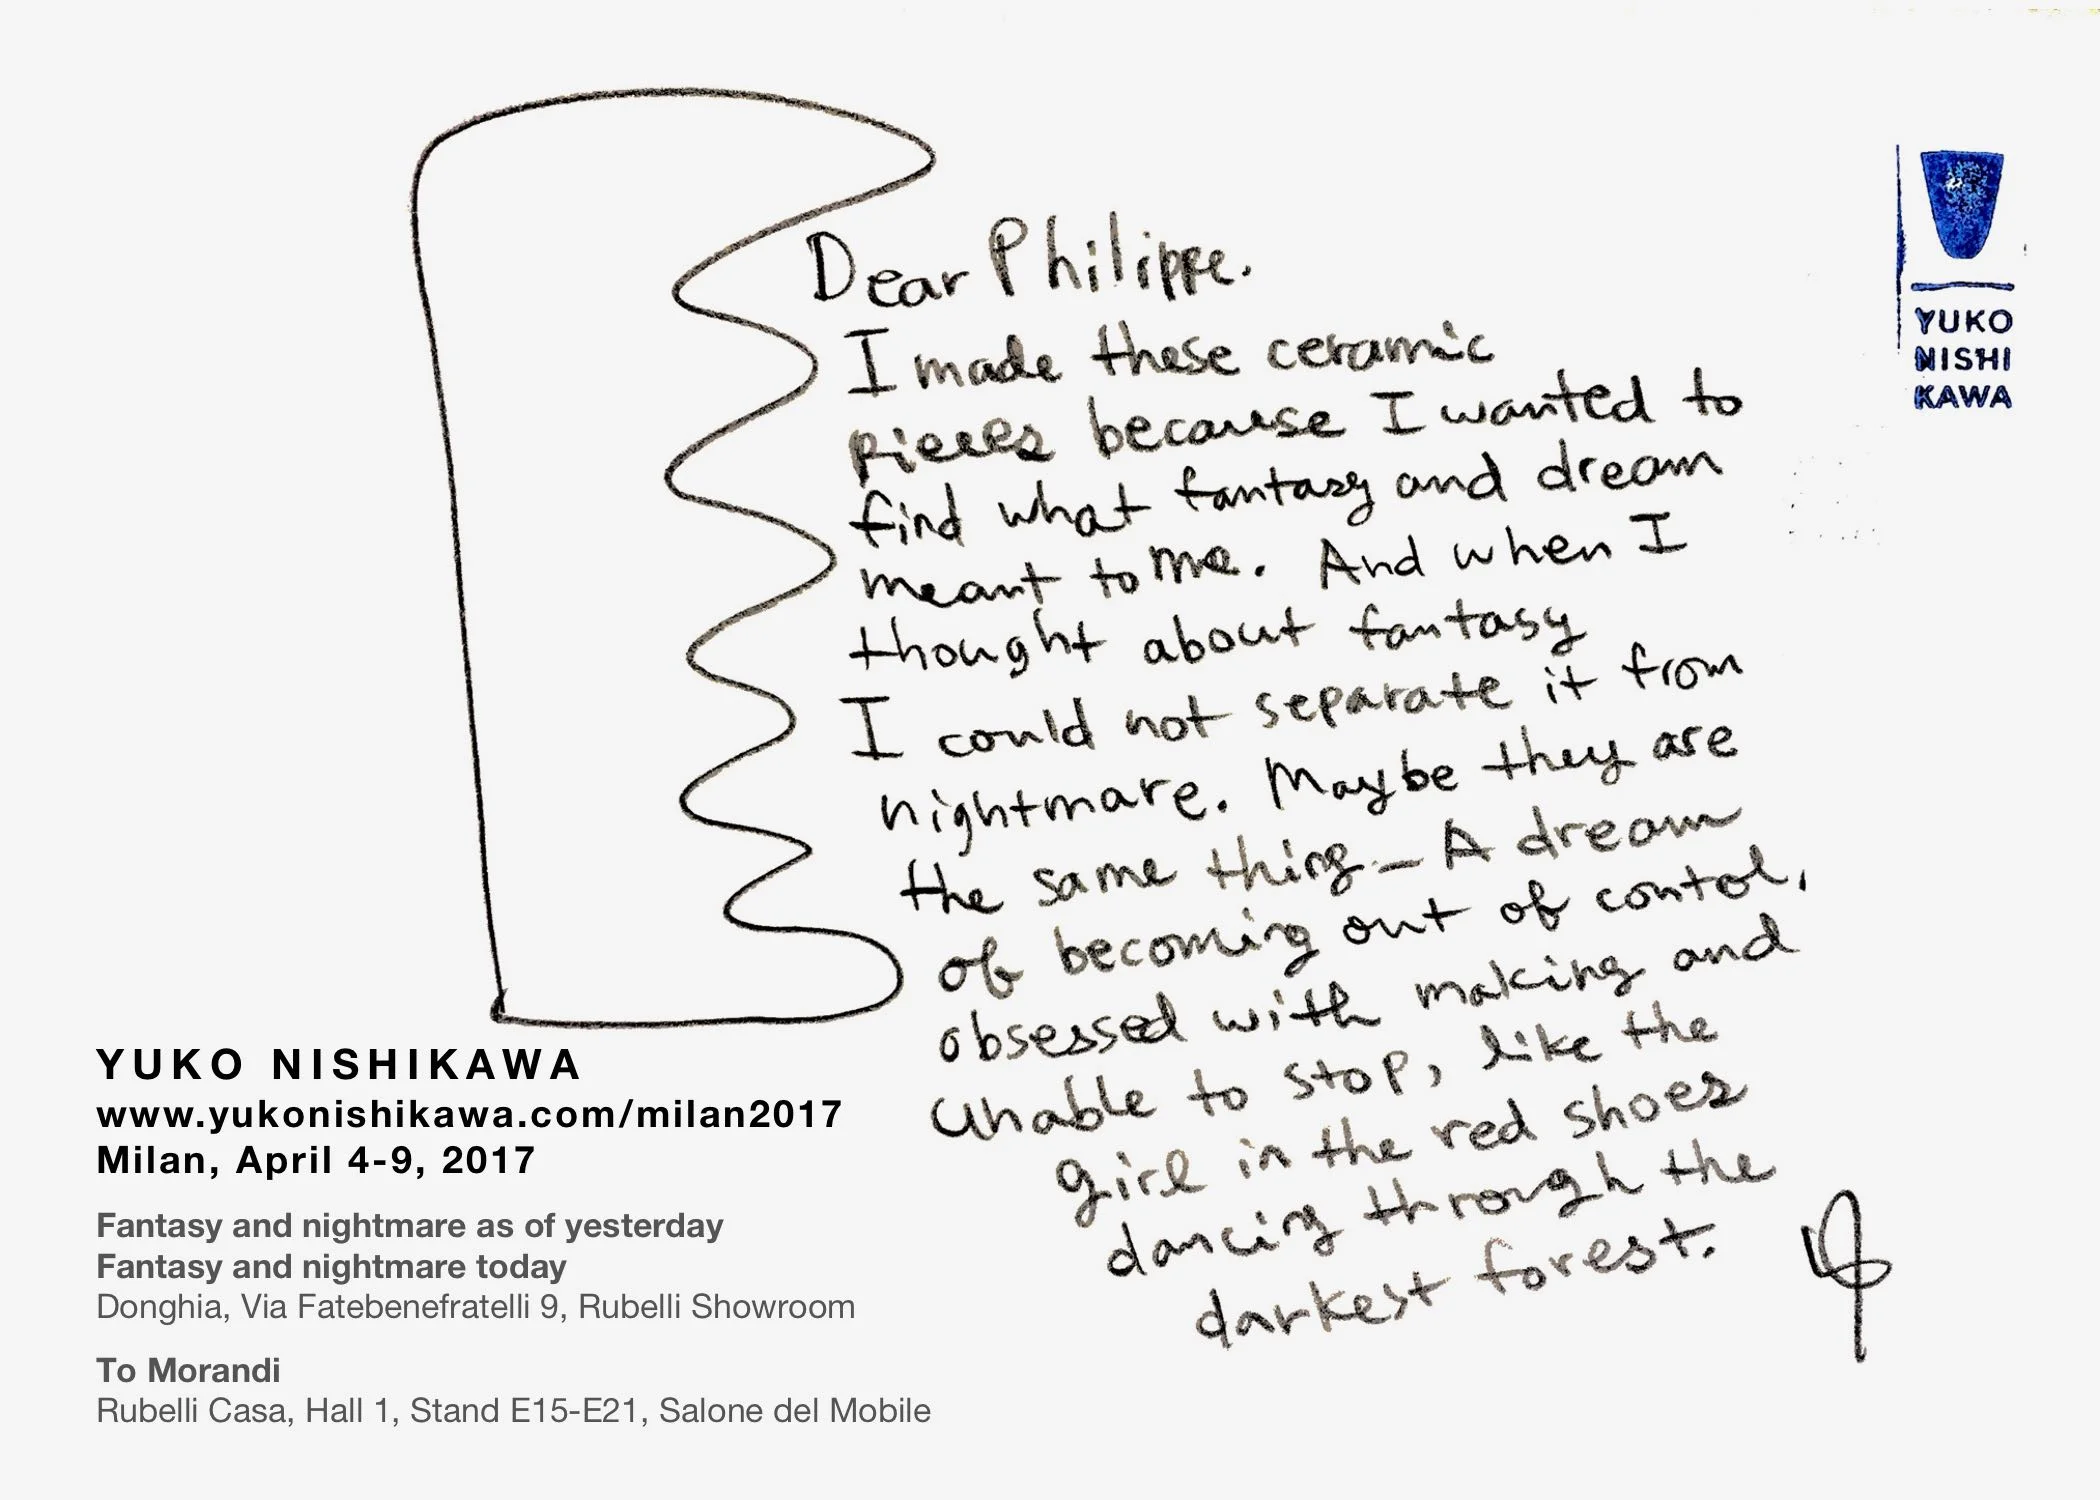 Dear Philippe.
I made these ceramic
pieces because I wanted to
find what fantasy and dream
meant to me. And when I
thought about fantasy
I could not separate it from
nightmare. Maybe they are
the same thing — A dream
of becoming out of contol,
obsessed with making and
unable to stop, like the
girl in the red shoes
dancing through the
darkest forest.
YUKO
NISHI
KAWA
YUKO NISHIKAWA
www.yukonishikawa.com/milan2017
Milan, April 4-9, 2017
Fantasy and nightmare as of yesterday
Fantasy and nightmare today
Donghia, Via Fatebenefratelli 9, Rubelli Showroom
To Morandi
Rubelli Casa, Hall 1, Stand E15-E21, Salone del Mobile